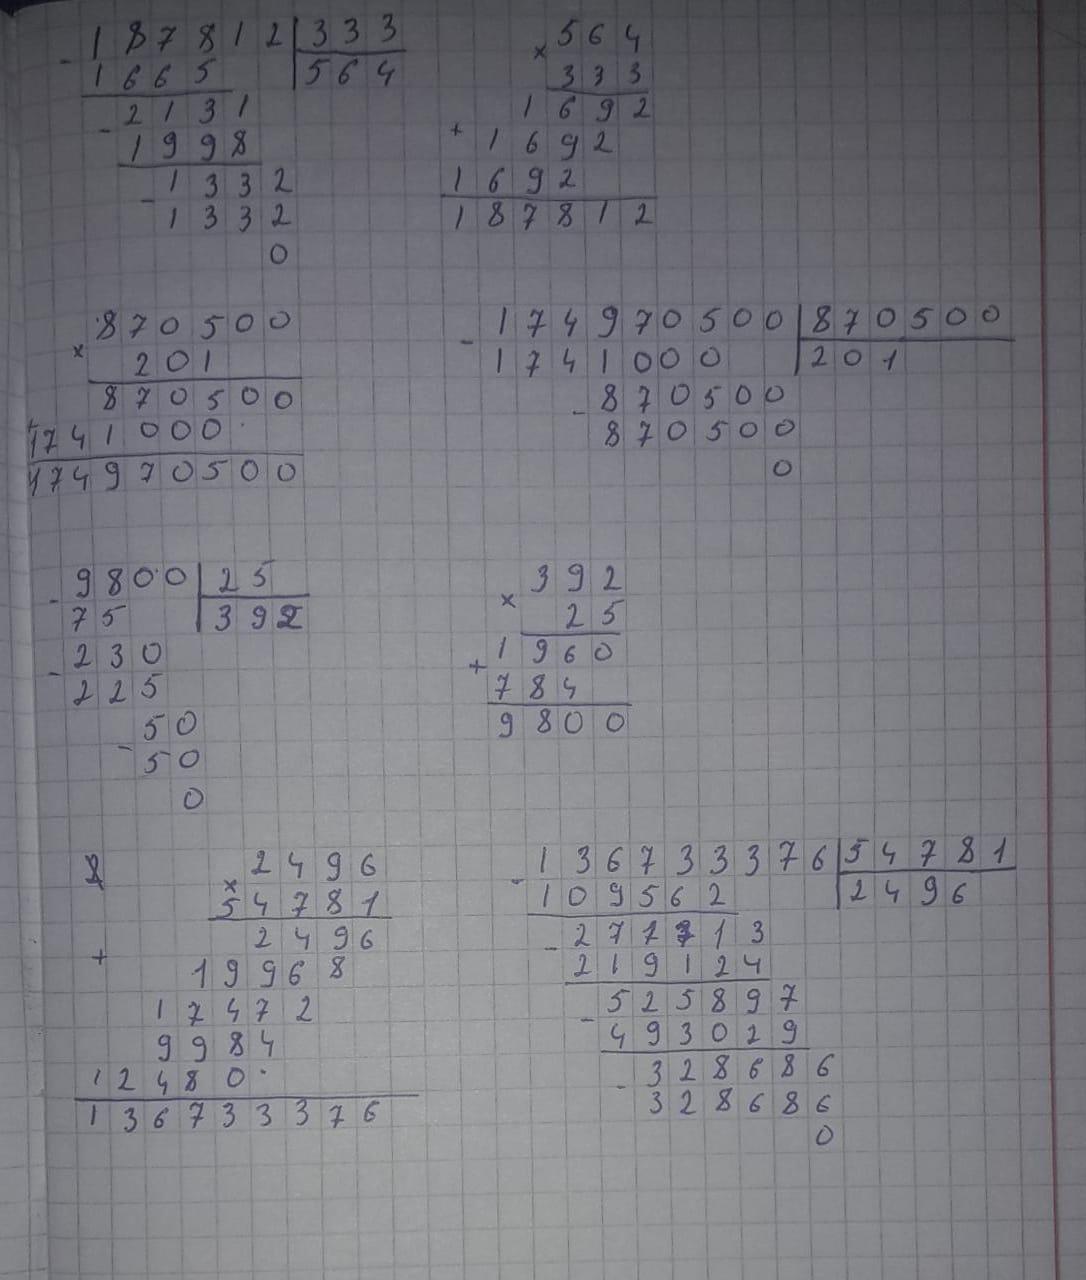 - 187812 | 333
1665 | 564
- 2131
1998
- 1332
1332
0
× 564
333
1692
+ 1692
1692
187812
870500
× 201
870500
+ 1741000
174970500
- 174970500 | 870500
1741000 | 201
- 870500
870500
0
- 9800 | 25
75 | 392
- 230
225
- 50
50
0
392
× 25
1960
+ 784
9800
× 2496
54781
2496
+ 19968
17472
9984
12480
136733376
- 136733376 | 54781
109562 | 2496
- 271713
219124
- 525897
493029
- 328686
328686
0